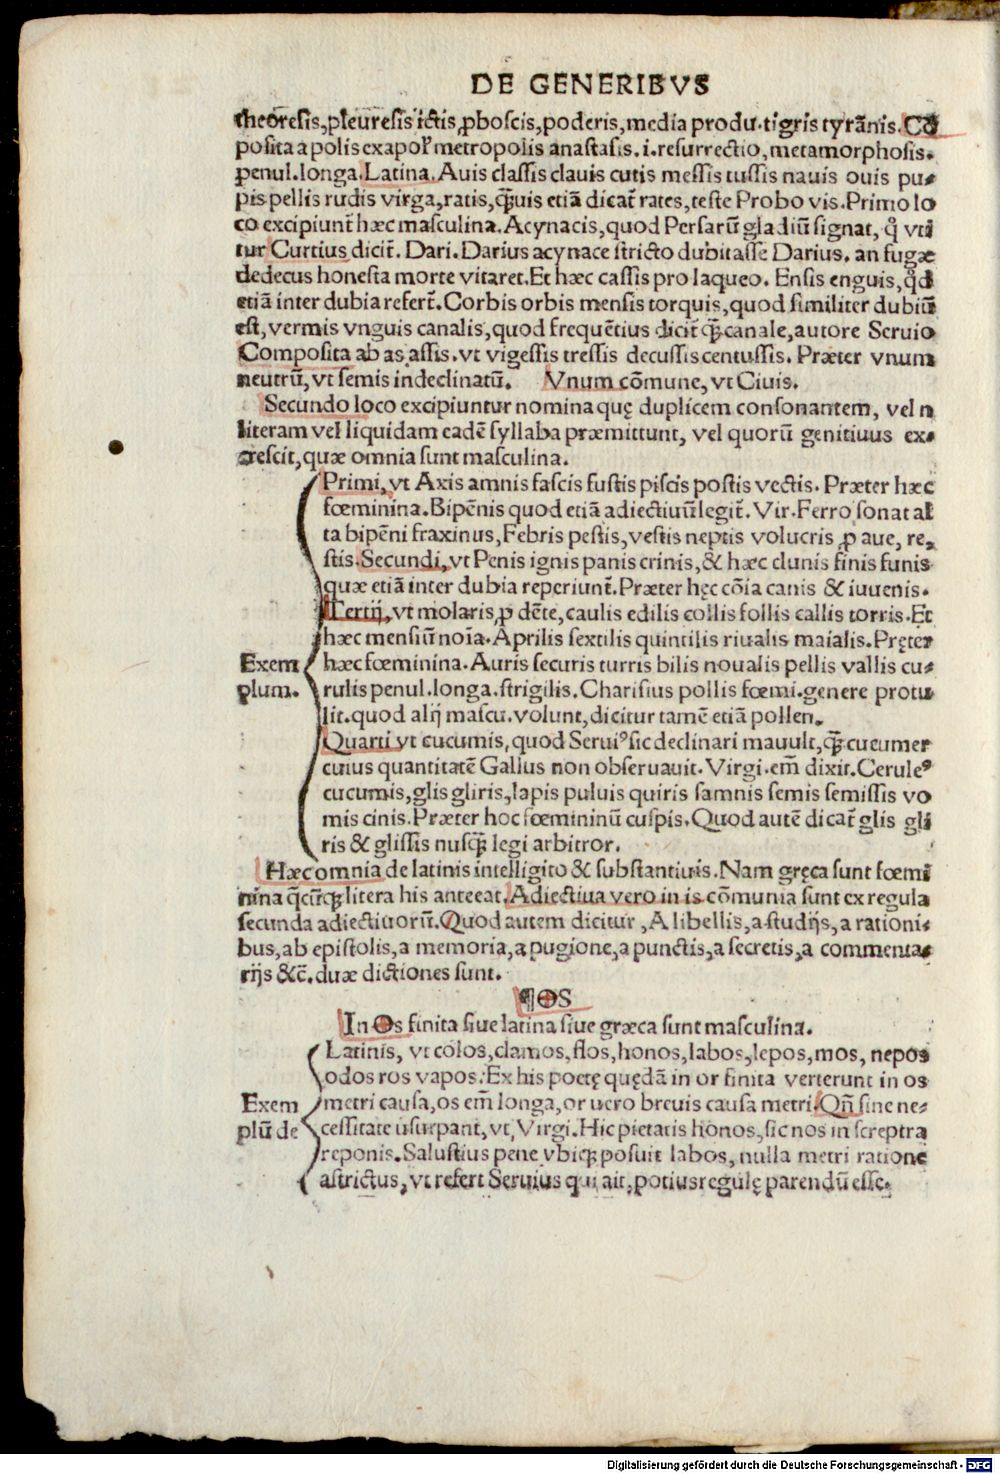 DE GENERIBVS
theoresis,pleuresis ictis,ꝓboscis,poderis,media produ.tigris tyrānis.Cō
posita a polis exapoł metropolis anastasis.i.resurrectio,metamorphosis.
penul.longa.Latina.Auis classis clauis cutis messis tussis nauis ouis pu-
pis pellis rudis virga,ratis,ꝙ̃uis etiā dicat᷑ rates,teste Probo vis.Primo lo
co excipiunt᷑ hæc masculina.Acynacis,quod Persarū gladiū signat, q̊ vti
tur Curtius dicit᷑. Dari.Darius acynace stricto dubitasse Darius. an fugæ
dedecus honesta morte vitaret.Et hæc cassis pro laqueo. Ensis enguis,qd̊
etiā inter dubia refert᷑.Corbis orbis mensis torquis,quod similiter dubiū
est,vermis vnguis canalis,quod frequētius dicit᷑ ꝙ̃ canale,autore Seruio
Composita ab as assis.vt vigessis tressis decussis centussis. Præter vnum
neutrū,vt semis indeclinatū. Vnum cōmune,vt Ciuis.
Secundo loco excipiuntur nomina quę duplicem consonantem, vel n
literam vel liquidam eadē syllaba præmittunt, vel quorū genitiuus ex-
crescit,quæ omnia sunt masculina.
Primi,vt Axis amnis fascis fustis piscis postis vectis. Præter hæc
fœminina.Bipēnis quod etiā adiectiuū legit᷑. Vir.Ferro sonat al
ta bipēni fraxinus,Febris pestis,vestis neptis volucris ꝓ aue, re-
stis.Secundi,vt Penis ignis panis crinis,& hæc clunis finis funis
quæ etiā inter dubia reperiunt᷑.Præter hęc cōia canis & iuuenis.
Tertij,vt molaris,ꝓ dēte,caulis edilis collis follis callis torris.Et
hæc mensiū noīa.Aprilis sextilis quintilis riualis maialis.Pręter
Exem
plum.
hæc fœminina.Auris securis turris bilis noualis pellis vallis cu-
rulis penul.longa.strigilis.Charisius pollis fœmi.genere protu
lit.quod alij mascu.volunt,dicitur tamē etiā pollen.
Quarti vt cucumis,quod Serui⁹ sic declinari mauult,ꝙ̃ cucumer
cuius quantitatē Gallus non obseruauit.Virgi.em̄ dixit.Cerule⁹
cucumis,glis gliris,lapis puluis quiris samnis semis semissis vo
mis cinis.Præter hoc fœmininū cuspis.Quod autē dicat᷑ glis gli
ris & glissis nusꝙ̃ legi arbitror.
Hæc omnia de latinis intelligito & substantiuis.Nam gręca sunt fœmi
nina q̄cūq; litera his anteeat.Adiectiua vero in is cōmunia sunt ex regula
secunda adiectiuorū.Quod autem dicitur ,A libellis,a studijs,a rationi-
bus,ab epistolis,a memoria,a pugione,a punctis,a secretis,a commenta-
rijs &c̄.duæ dictiones sunt.
¶OS
In Os finita siue latina siue græca sunt masculina.
Latinis, vt colos,clamos,flos,honos,labos,lepos,mos, nepos
odos ros vapos.Ex his poetę quędā in or finita verterunt in os
Exem
plū de
metri causa,os em̄ longa,or uero breuis causa metri.Qn̄ sine ne-
cessitate usurpant,vt,Virgi.Hic pietatis honos,sic nos in screptra
reponis.Salustius pene vbiq; posuit labos,nulla metri ratione
astrictus,vt refert Seruius qui ait,potius regulę parendū esse.
Digitalisierung gefördert durch die Deutsche Forschungsgemeinschaft - DFG